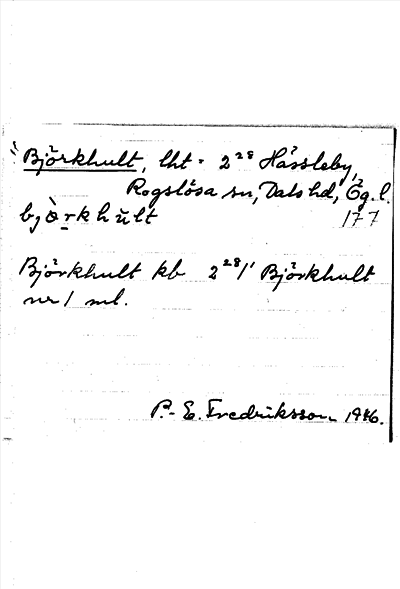 Björkhult, lht. 2²⁸ Hässleby,
Rogslösa sn, Dals hd, Ög. l.
bjò̤rkhŭlt 177
Björkhult kb 2²⁸/¹ Björkhult
nr 1 ml.
P.-E. Fredriksson 1946.